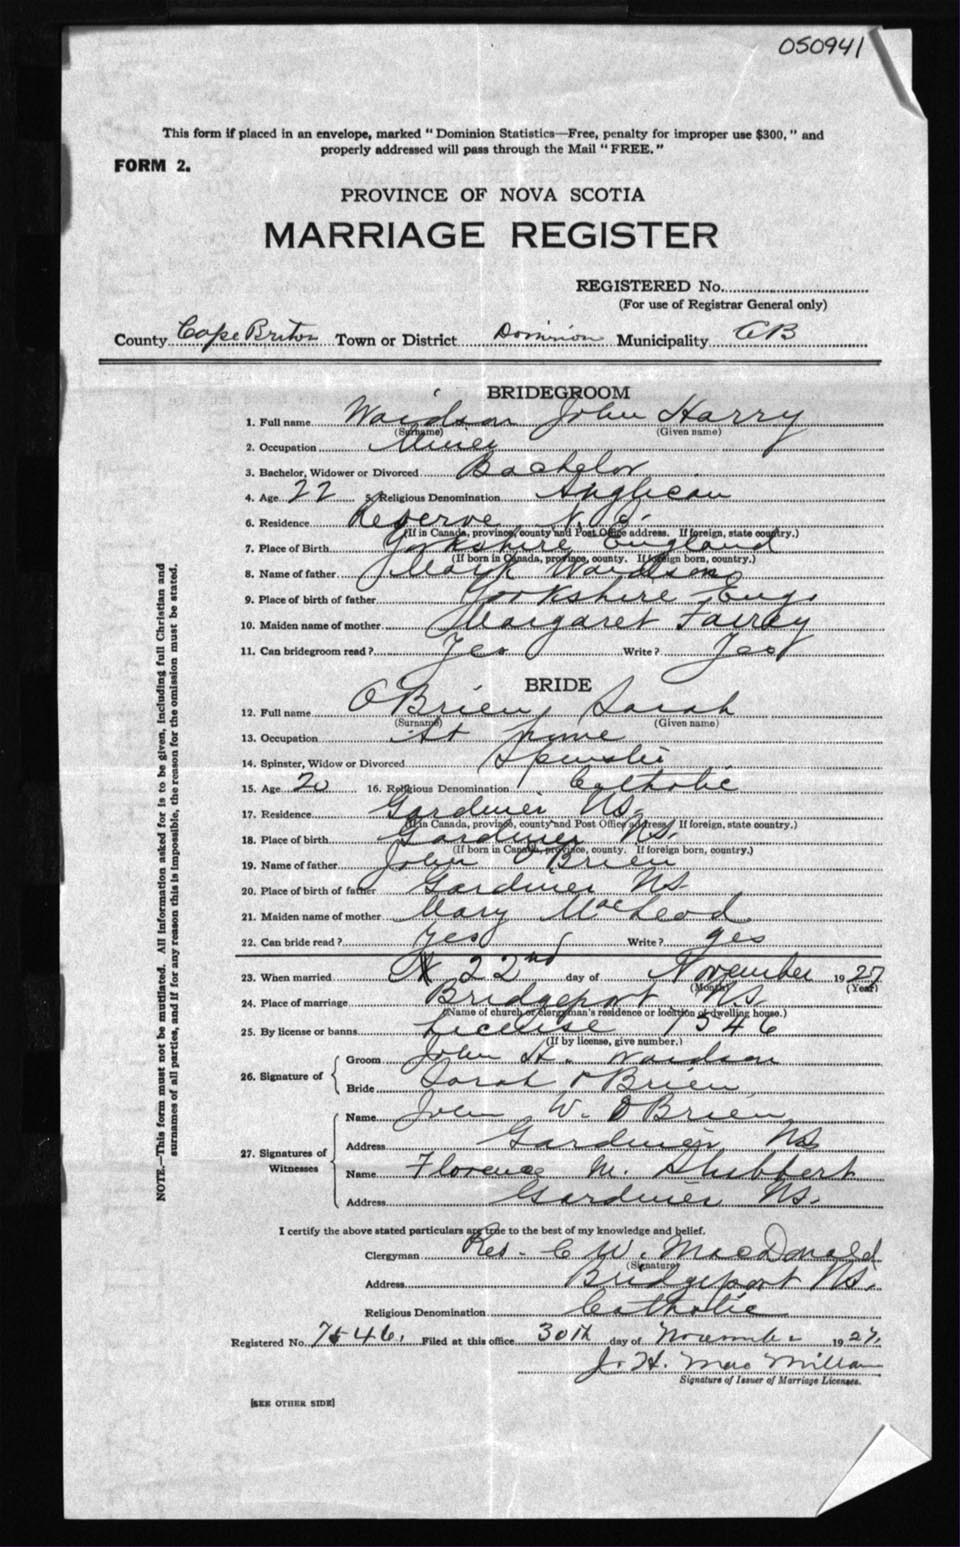 050941
This form if placed in an envelope, marked "Dominion Statistics—Free, penalty for improper use $300," and
properly addressed will pass through the Mail "FREE."
FORM 2.
PROVINCE OF NOVA SCOTIA
MARRIAGE REGISTER
REGISTERED No.
(For use of Registrar General only)
County Cape Breton Town or District Dominion Municipality CB
BRIDEGROOM
1. Full name Waidson John Harry
(Surname) (Given name)
2. Occupation Miner
3. Bachelor, Widower or Divorced Bachelor
4. Age 22 5. Religious Denomination Anglican
6. Residence Reserve N.S.
(If in Canada, province, county and Post Office address. If foreign, state country.)
7. Place of Birth Yorkshire England
(If born in Canada, province, county. If foreign born, country.)
8. Name of father Mark Waidson
9. Place of birth of father Yorkshire Eng.
10. Maiden name of mother Margaret Fairey
11. Can bridegroom read? Yes Write? Yes
BRIDE
12. Full name O'Brien, Sarah
(Surname) (Given name)
13. Occupation At home
14. Spinster, Widow or Divorced Spinster
15. Age 20 16. Religious Denomination Catholic
17. Residence Gardiner NS.
(If in Canada, province, county and Post Office address. If foreign, state country.)
18. Place of birth Gardiner NS.
(If born in Canada, province, county. If foreign born, country.)
19. Name of father John O'Brien
20. Place of birth of father Gardiner NS
21. Maiden name of mother Mary MacLeod
22. Can bride read? yes Write? yes
23. When married 22nd day of November 1927
(Month) (Year)
24. Place of marriage Bridgeport, NS
(Name of church or clergyman's residence or location of dwelling house.)
25. By license or banns License 7546
(If by license, give number.)
26. Signature of
Groom John H. Waidson
Bride Sarah O'Brien
27. Signatures of Witnesses
Name John W. O'Brien
Address Gardiner NS
Name Florence M. Shibbert
Address Gardiner NS.
I certify the above stated particulars are true to the best of my knowledge and belief.
Clergyman Rev. C W. MacDonald
(Signature)
Address Bridgeport NS.
Religious Denomination Catholic
Registered No. 7546. Filed at this office 30th day of November 1927.
J. H. MacMillan
Signature of Issuer of Marriage Licenses.
[SEE OTHER SIDE]
NOTE.—This form must not be mutilated. All information asked for is to be given, including full Christian and
surnames of all parties, and if for any reason this is impossible, the reason for the omission must be stated.